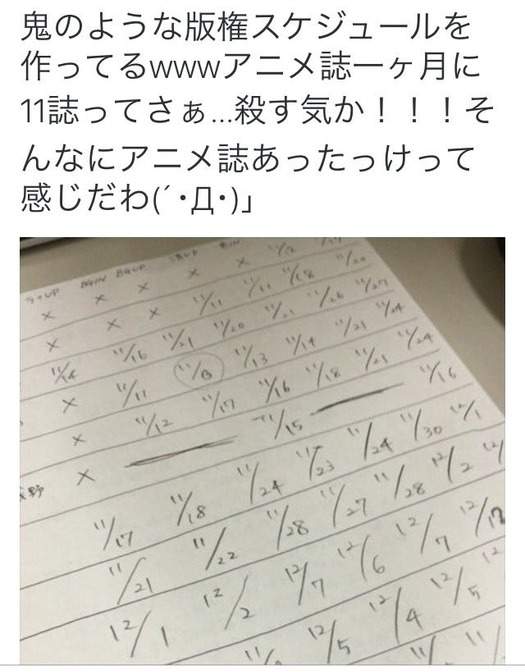 鬼のような版権スケジュールを
作ってるwwwアニメ誌一ヶ月に
11誌ってさぁ...殺す気か！！！そ
んなにアニメ誌あったっけって
感じだわ(´･Д･)」
ラフUP BGIN BGUP
× × × × ×
× × × 11/11 11/11 11/18 11/20
11/14 11/16 11/21 11/20 11/21 11/26 11/27
× 11/11 11/13 11/14 11/21 11/24
× 11/12 11/17 11/16 11/18 11/21 11/24
× 11/15 11/16
11/17 11/18 11/24 11/23 11/24 11/30 12/1
11/21 11/22 11/28 11/27 11/28 12/2
12/1 12/2 12/7 12/6 12/7 12/12
12/5 12/4 12/5